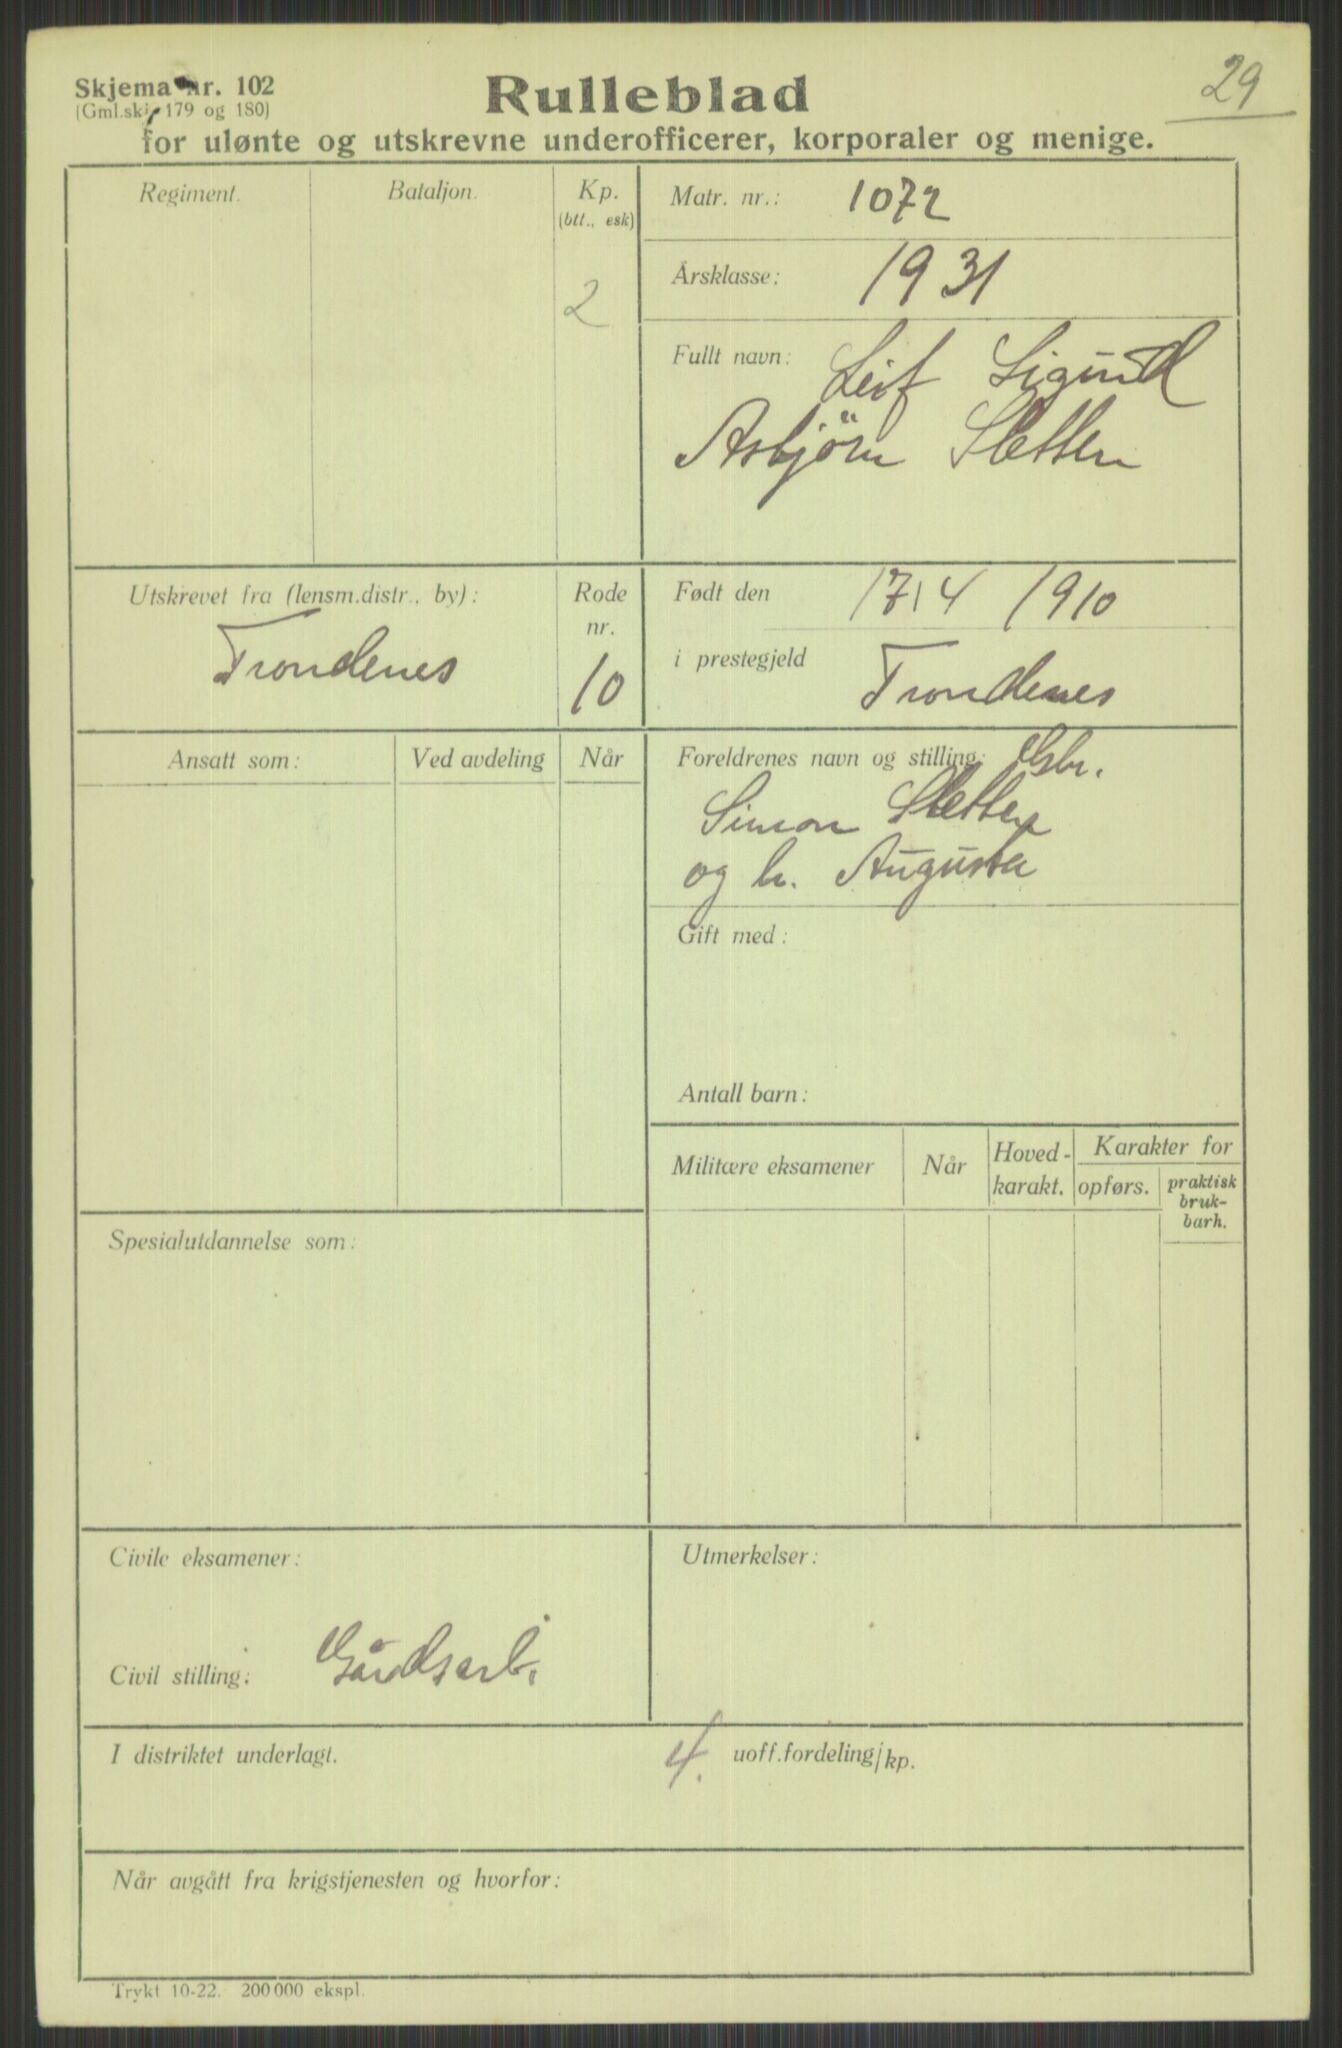 29
Skjema nr. 102
(Gml.skj. 179 og 180)
Rulleblad
for ulønte og utskrevne underofficerer, korporaler og menige.
Regiment.
Bataljon.
Kp.
(btt., esk)
2
Matr. nr.: 1072
Årsklasse: 1931
Fullt navn: Leif Sigund
Asbjörn Sletten
Utskrevet fra (lensm.distr., by):
Trondenes
Rode
nr.
10
Født den 17/4 1910
i prestegjeld Trondenes
Ansatt som:
Ved avdeling
Når
Foreldrenes navn og stilling: Gbr.
Simon Sletten
og h. Augusta
Gift med:
Antall barn:
Militære eksamener
Når
Hoved-
karakt.
Karakter for
opførs.
praktisk
bruk-
barh.
Spesialutdannelse som:
Civile eksamener:
Civil stilling: Gårdsarb.
Utmerkelser:
I distriktet underlagt.
4. uoff.fordeling/kp.
Når avgått fra krigstjenesten og hvorfor:
Trykt 10-22. 200 000 ekspl.